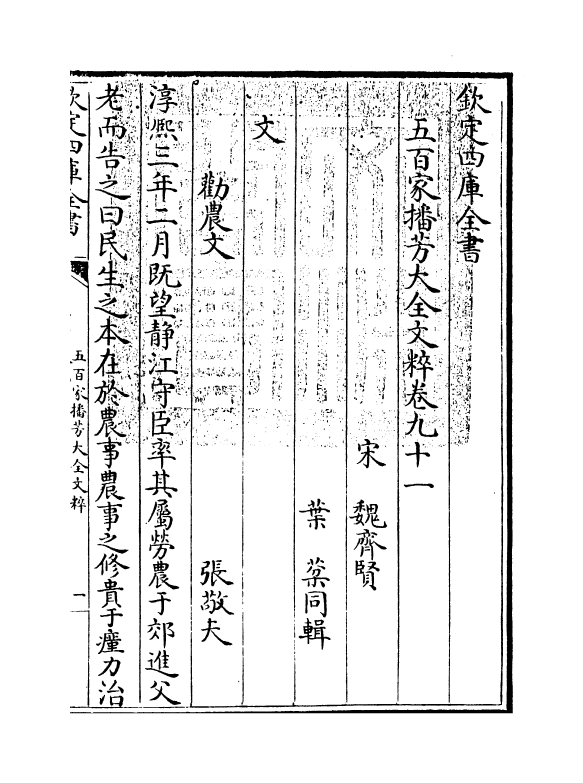 欽定四庫全書
五百家播芳大全文粹卷九十一
宋　魏齊賢
葉棻同輯
文
勸農文　張敬夫
淳熙三年二月既望静江守臣率其屬勞農于郊進父
老而告之曰民生之本在於農事農事之修貴于㢑力治
欽定四庫全書
五百家播芳大全文粹
一